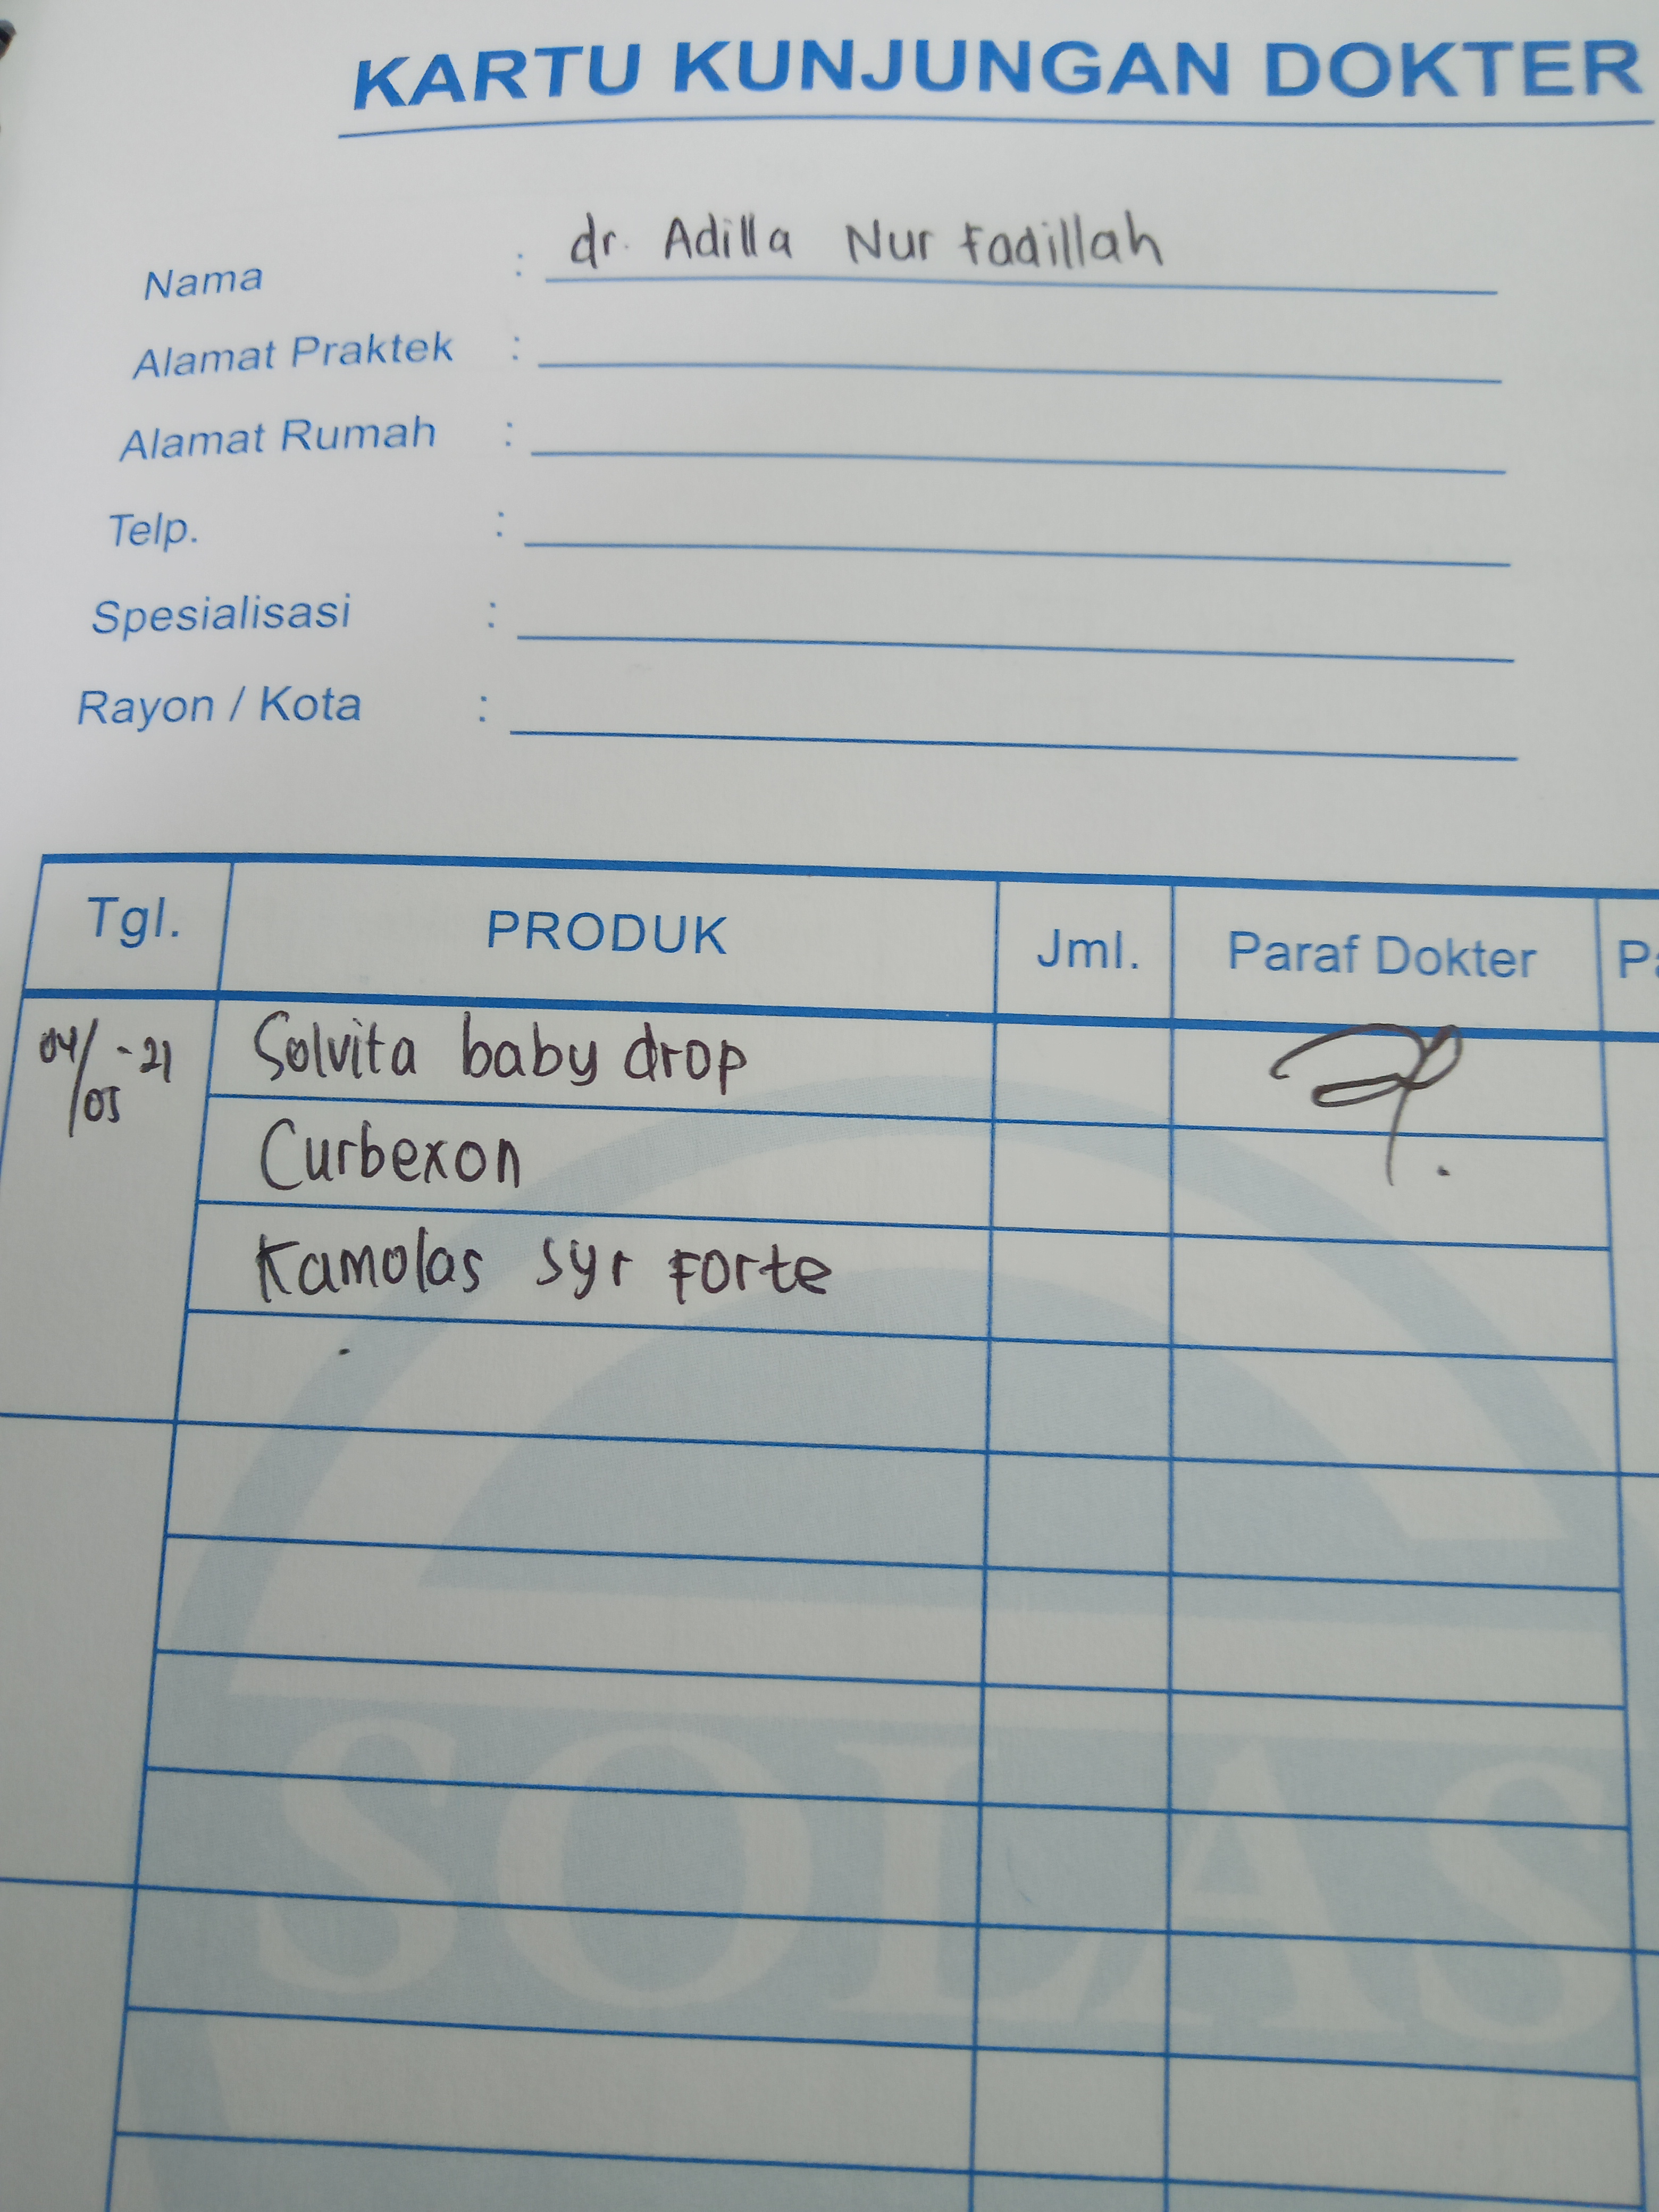 KARTU KUNJUNGAN DOKTER
Nama : dr. Adilla Nur Fadillah
Alamat Praktek :
Alamat Rumah :
Telp. :
Spesialisasi :
Rayon / Kota :
Tgl. PRODUK Jml. Paraf Dokter
04/05 -21 Solvita baby drop
Curbexon
Kamolas syr Forte
SOLAS